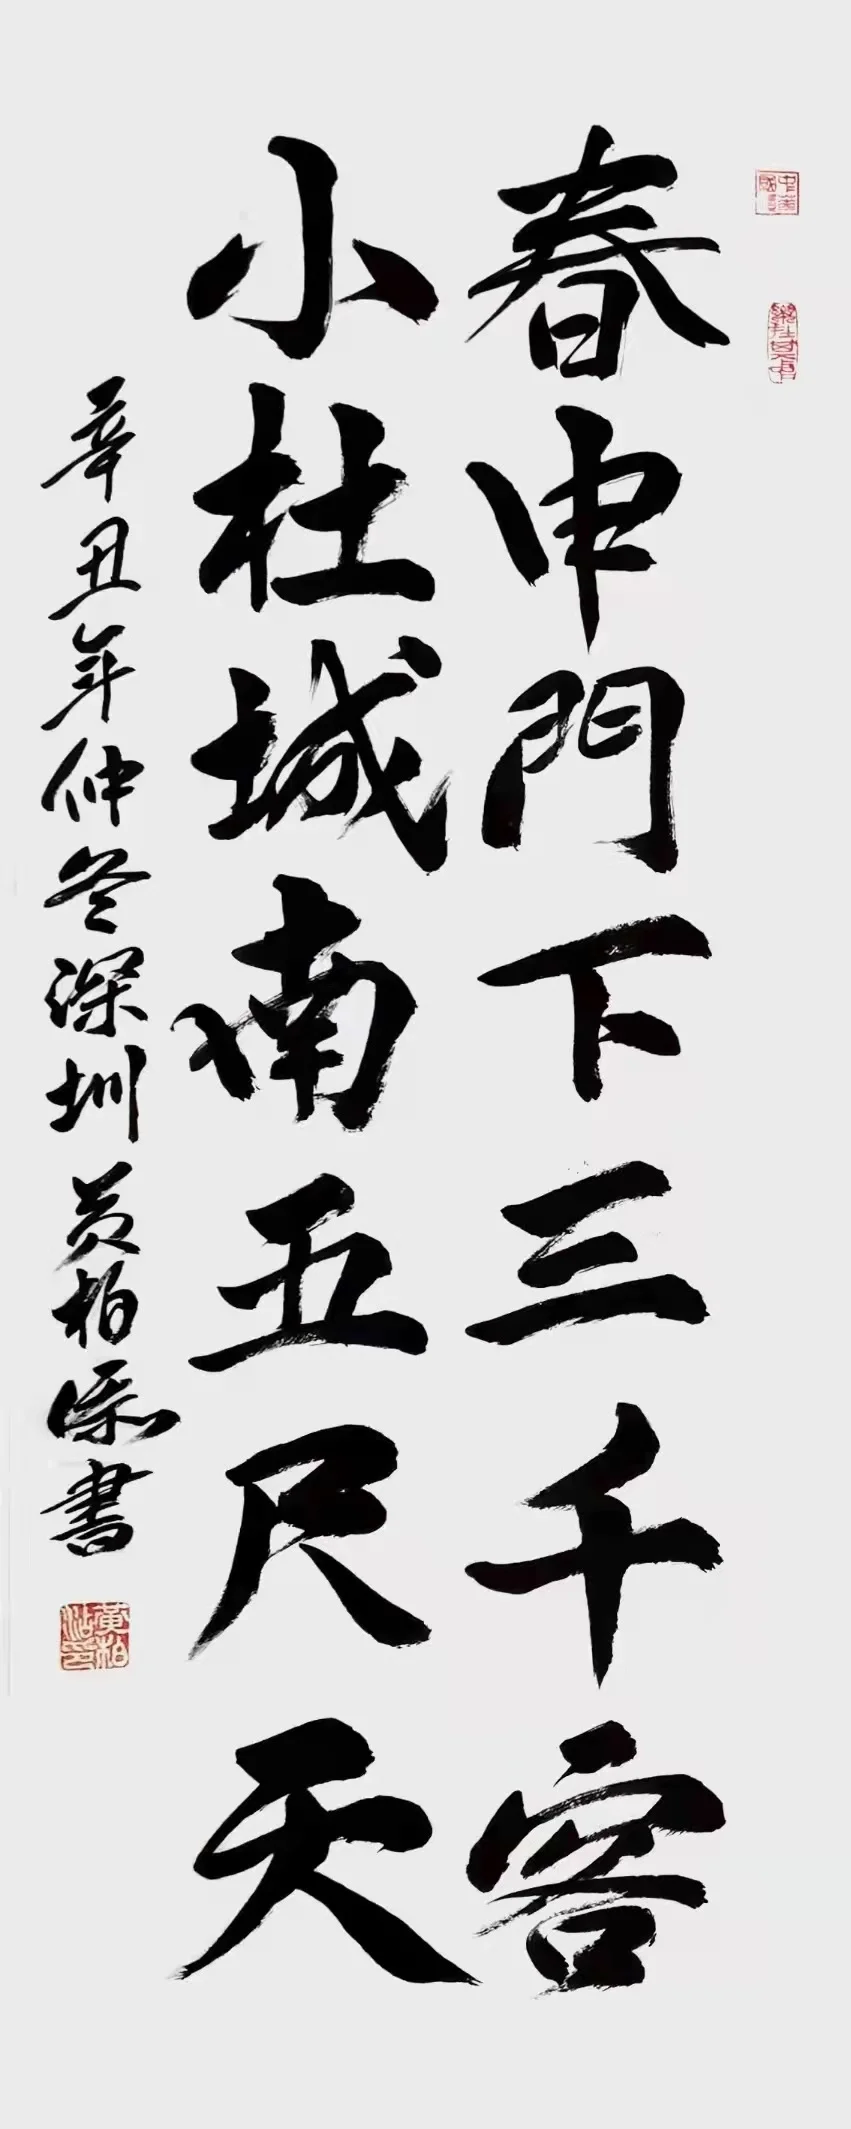 春申門下三千客
小杜城南五尺天
辛丑年仲冬深圳黄柏添書
黃柏